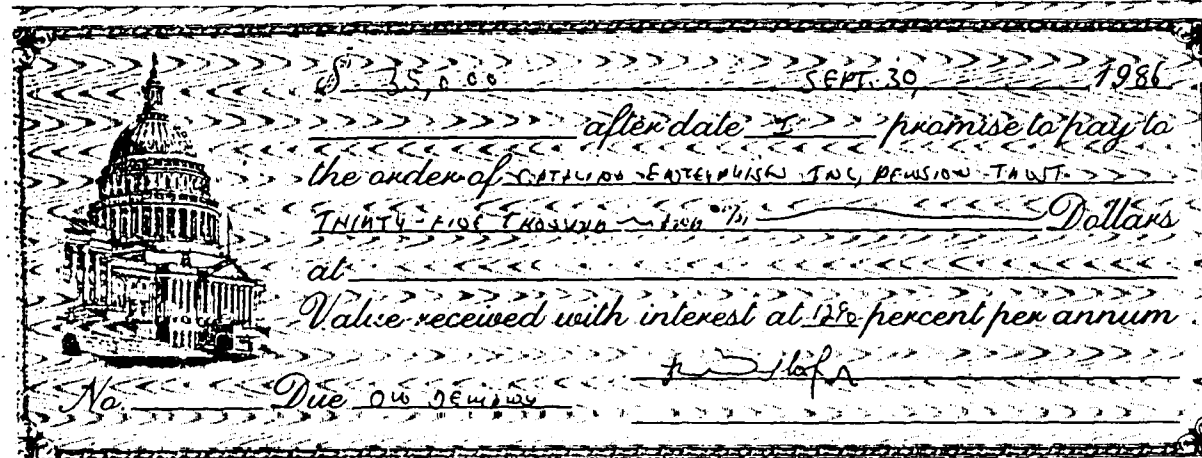 $ 35,000 SEPT. 30, 1986
after date I promise to pay to
the order of CATALINA ENTERPRISES INC, PENSION TRUST
THIRTY-FIVE THOUSAND Dollars
at
Value received with interest at 12% percent per annum
No Due ON DEMAND